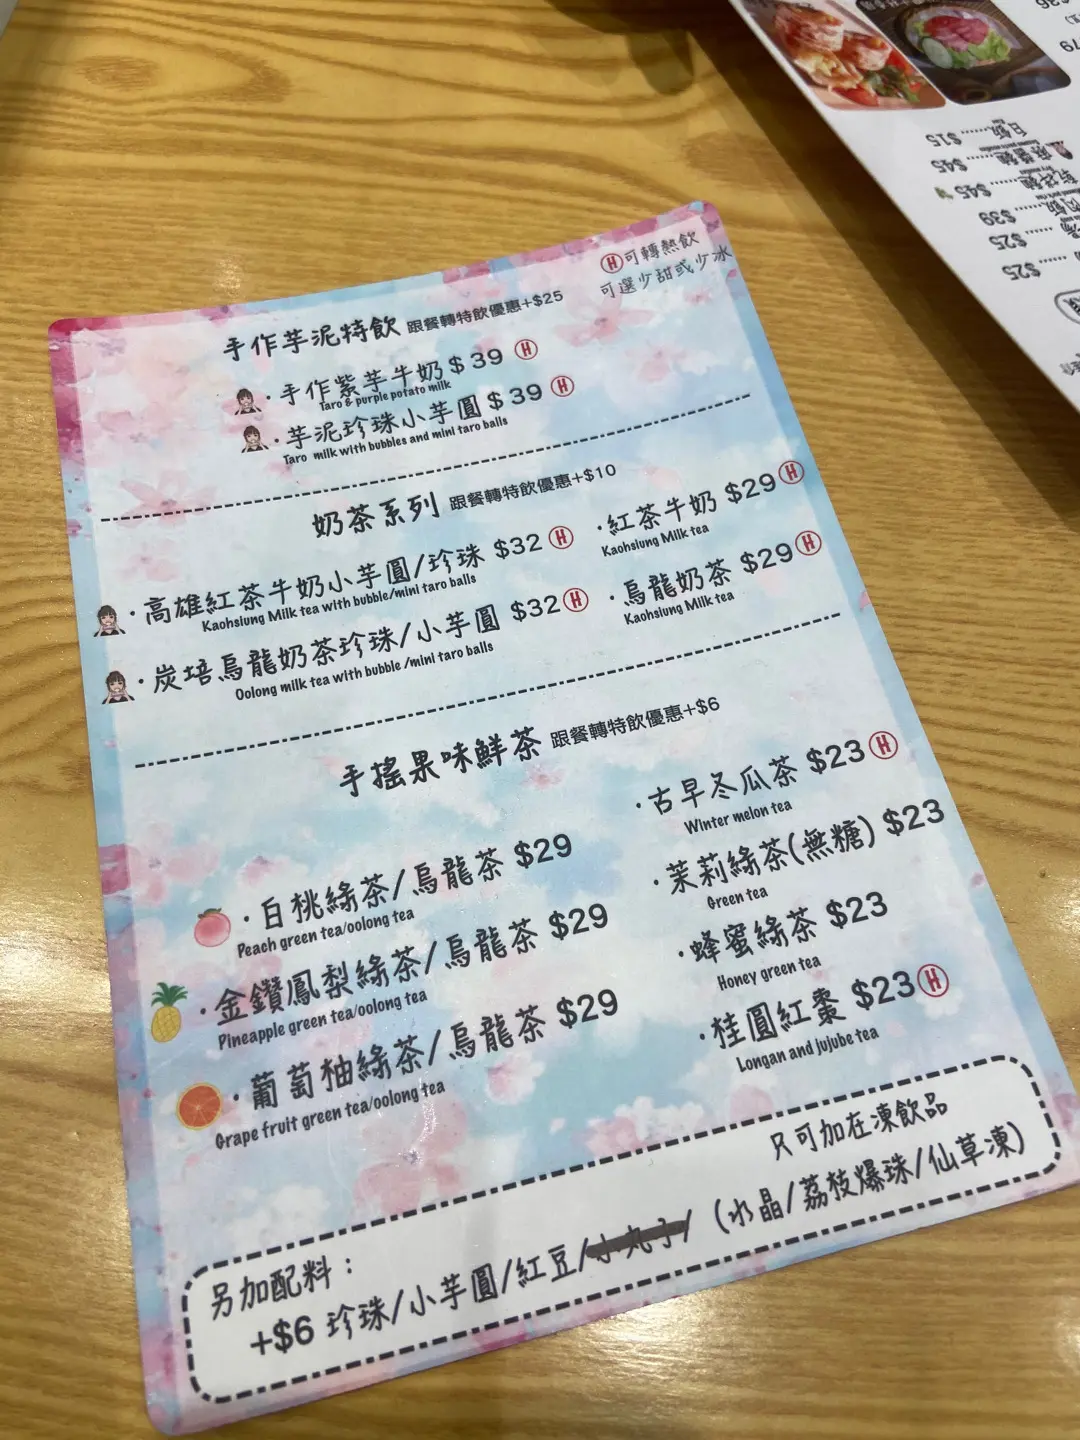 Ⓗ可轉熱飲
可選少甜或少冰
手作芋泥特飲 跟餐轉特飲優惠+$25
·手作紫芋牛奶 $39 Ⓗ
Taro & purple potato milk
·芋泥珍珠小芋圓 $39 Ⓗ
Taro milk with bubbles and mini taro balls
奶茶系列 跟餐轉特飲優惠+$10
·高雄紅茶牛奶小芋圓/珍珠 $32 Ⓗ
Kaohsiung Milk tea with bubble/mini taro balls
·炭培烏龍奶茶珍珠/小芋圓 $32 Ⓗ
Oolong milk tea with bubble /mini taro balls
·紅茶牛奶 $29 Ⓗ
Kaohsiung Milk tea
·烏龍奶茶 $29 Ⓗ
Kaohsiung Milk tea
手搖果味鮮茶 跟餐轉特飲優惠+$6
·白桃綠茶/烏龍茶 $29
Peach green tea/oolong tea
·金鑽鳳梨綠茶/烏龍茶 $29
Pineapple green tea/oolong tea
·葡萄柚綠茶/烏龍茶 $29
Grape fruit green tea/oolong tea
·古早冬瓜茶 $23 Ⓗ
Winter melon tea
·茉莉綠茶(無糖) $23
Green tea
·蜂蜜綠茶 $23
Honey green tea
·桂圓紅棗 $23 Ⓗ
Longan and jujube tea
只可加在凍飲品
另加配料：
+$6 珍珠/小芋圓/紅豆/小丸子/ (水晶/荔枝爆珠/仙草凍)
白飯........$15
$45
$45
$39
$25
$25